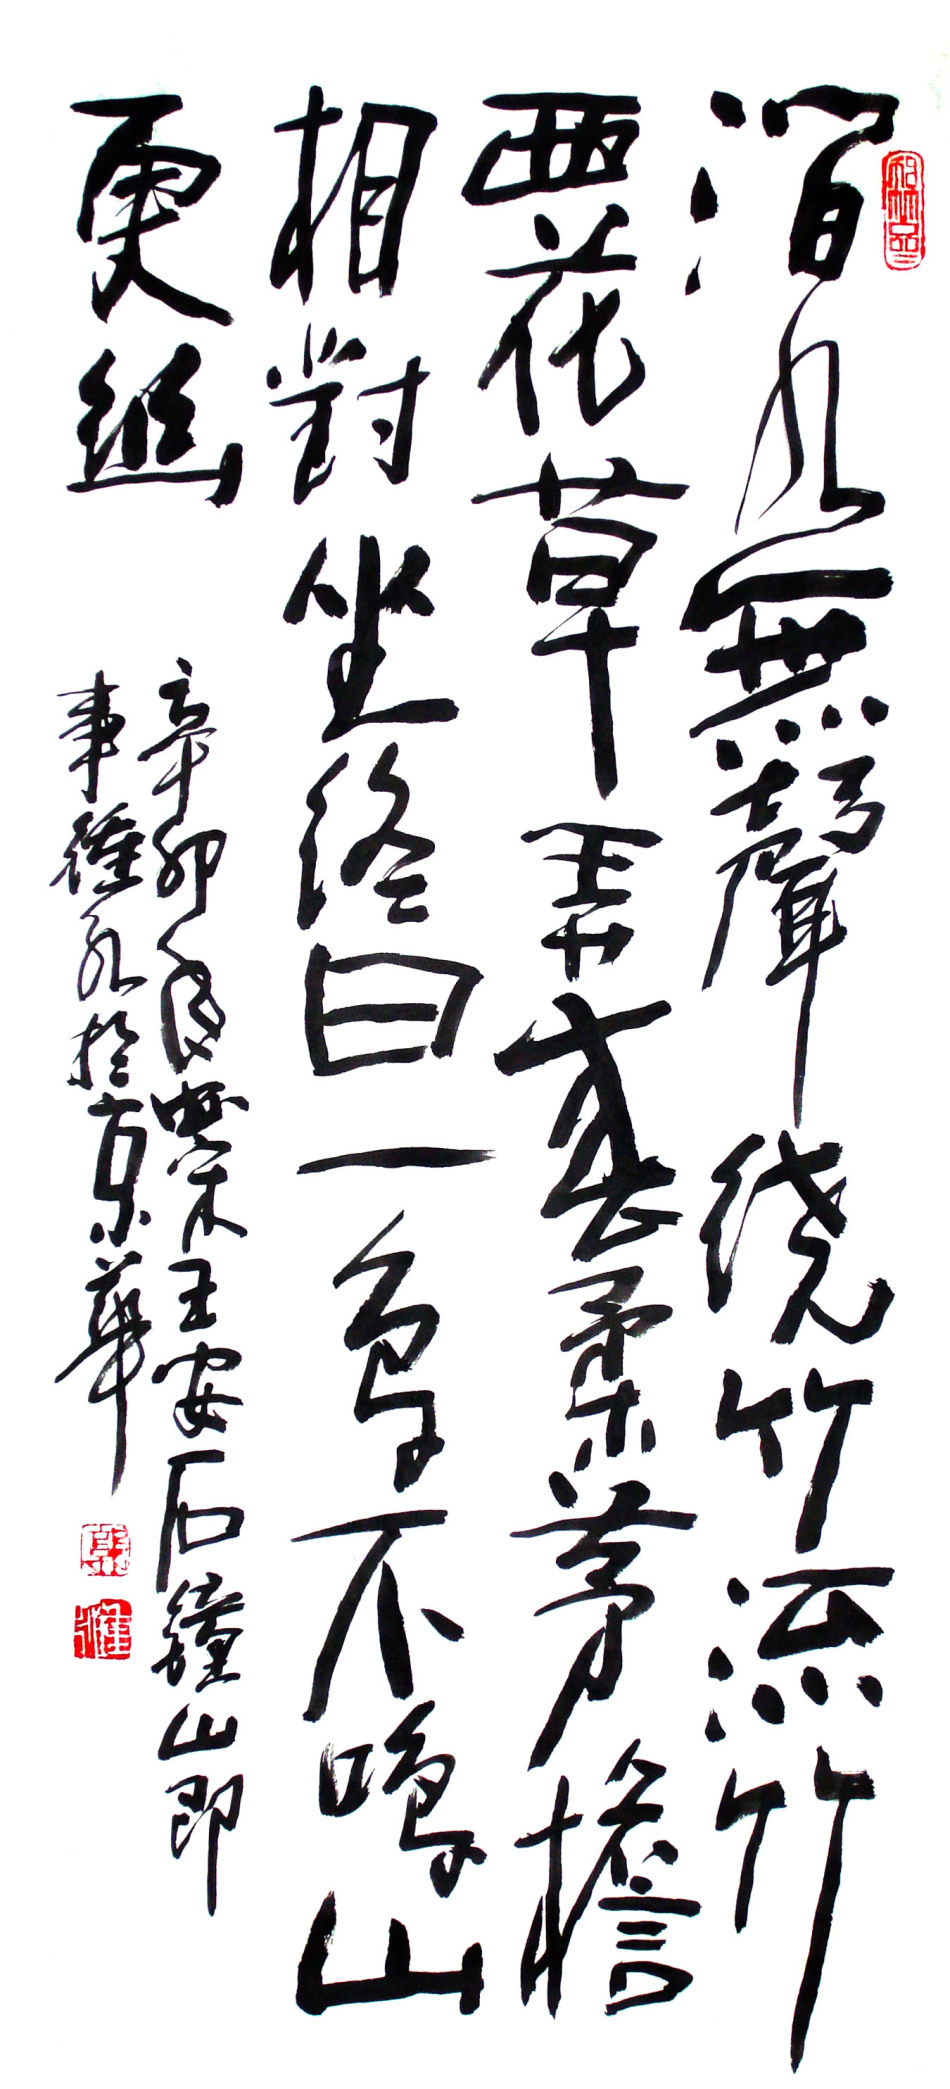 澗水無聲绕竹流竹
西花草弄春柔茅檐
相對坐終日一鳥不鳴山
更幽
辛卯年王安石鐘山即
事於京華